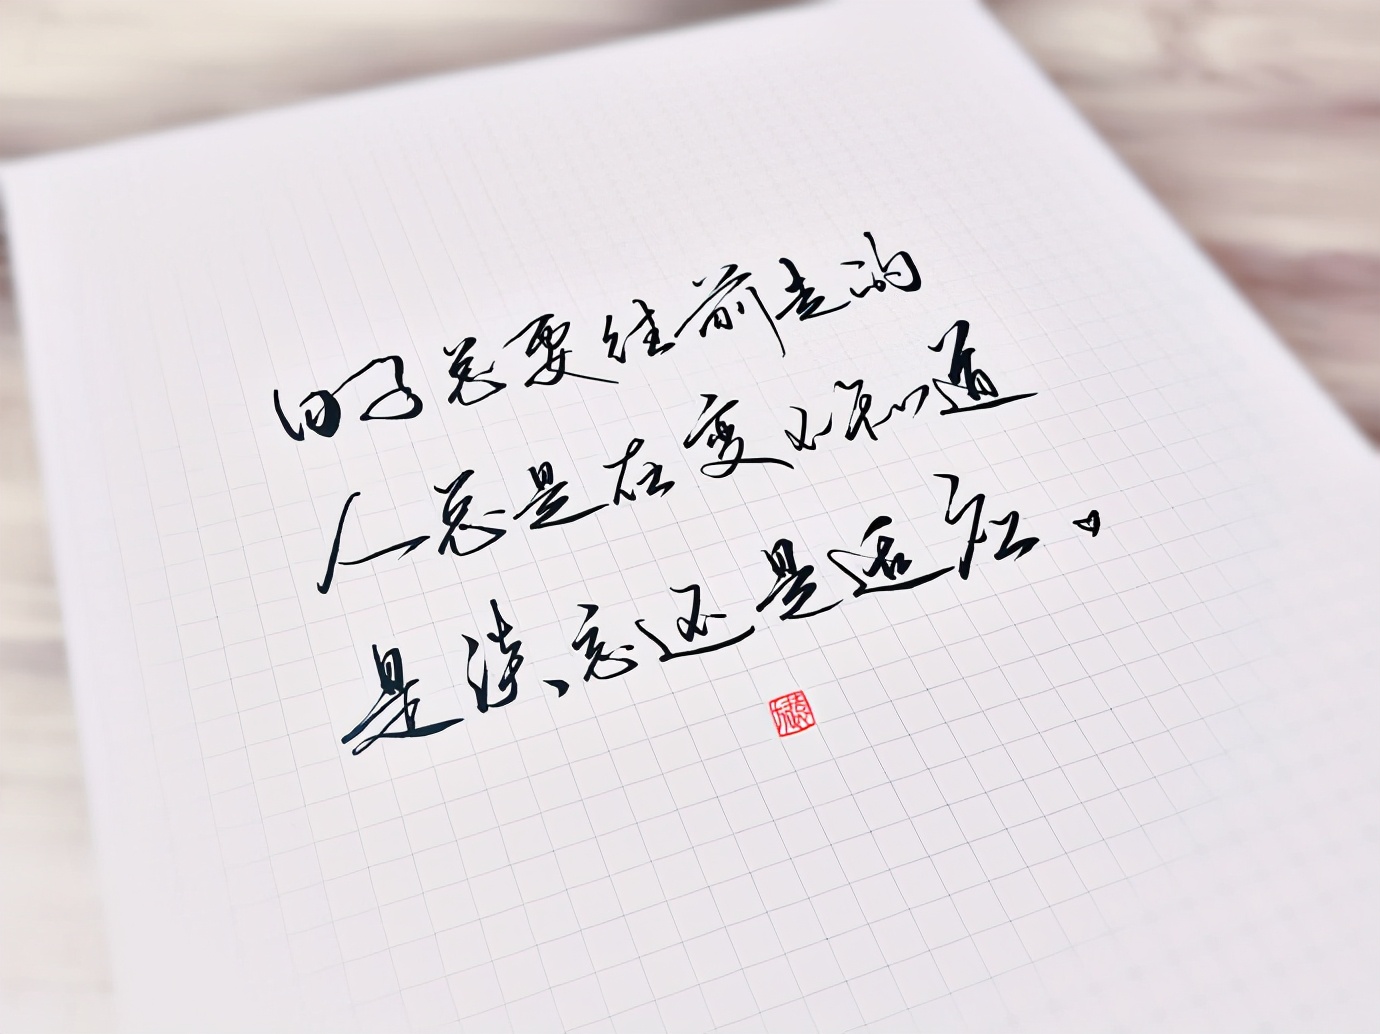 日子总要往前走的
人总是在变 不知道
是淡忘还是适应。